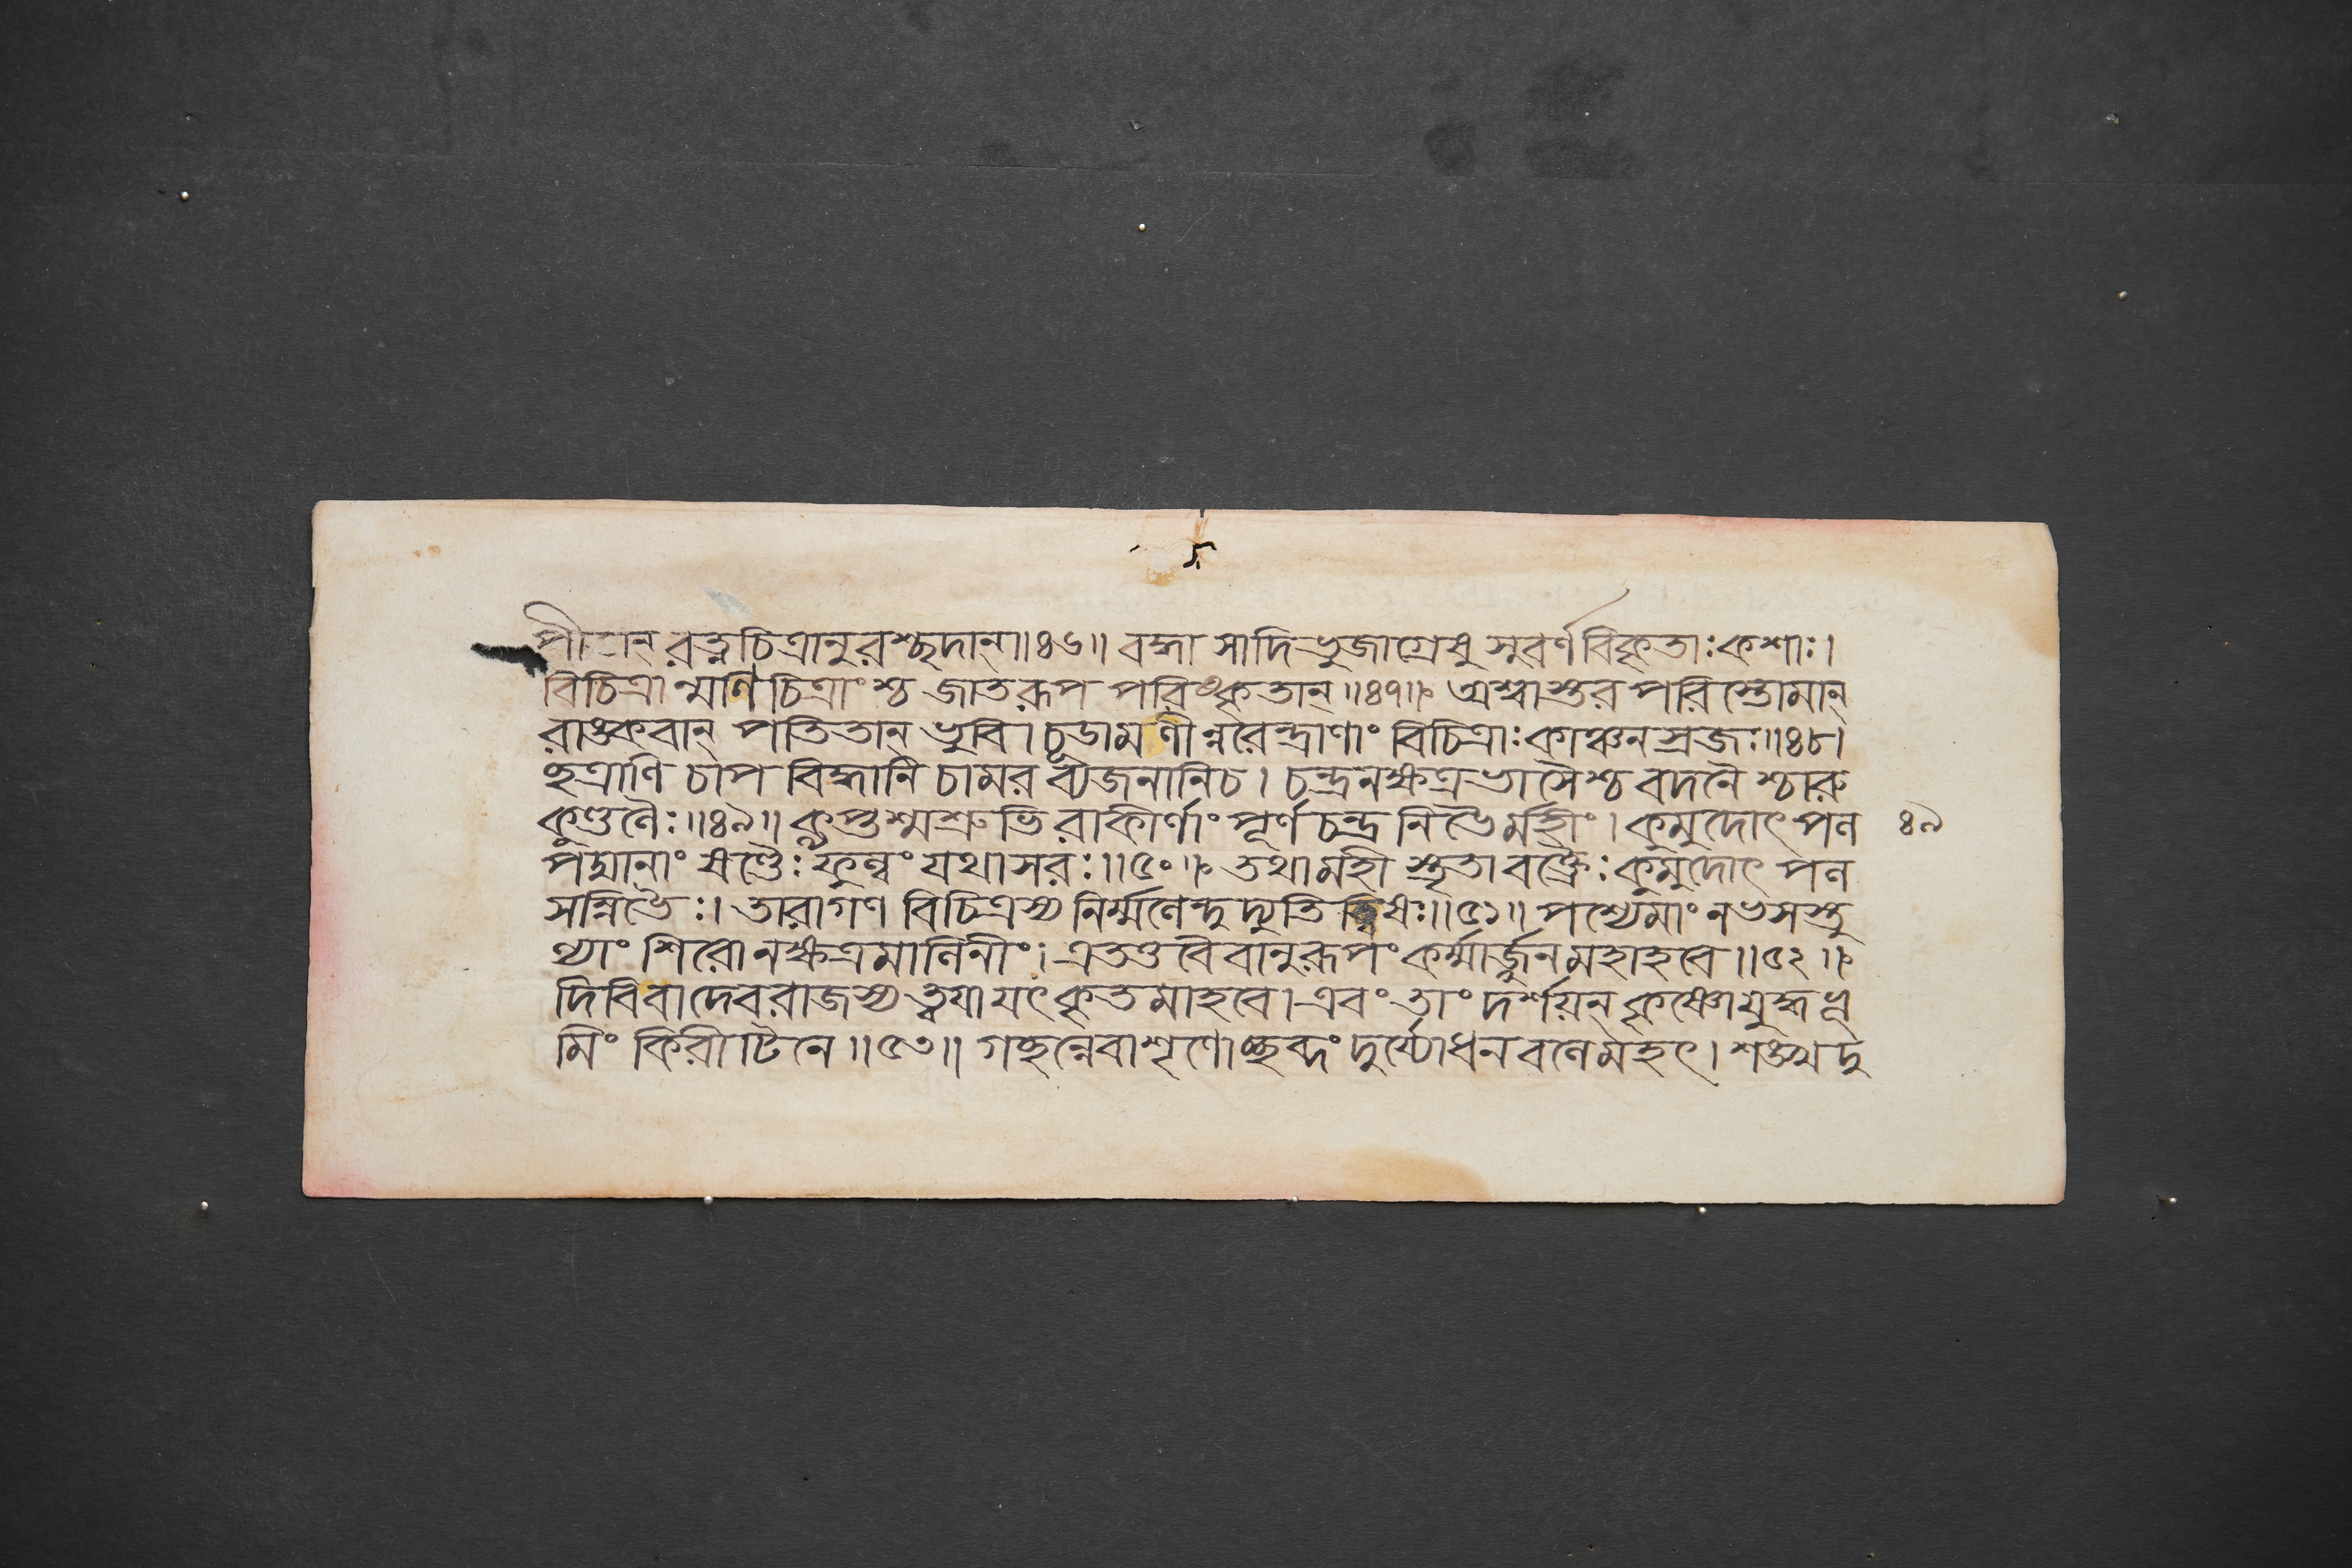 রত্নচিত্রানুরশ্ছদান্॥৪৬॥ বদ্ধা সাদিভুজাগ্রেষু সুবর্ণবিকৃতাঃ কশাঃ।
বিচিত্রান্মণিচিত্রাংশ্চ জাতরূপ পরিষ্কৃতান্॥৪৭॥ অশ্বাস্তর পরিস্তোমান্
রাঙ্কবান্ পতিতান্ ভুবি। চূডামণীন্নরেন্দ্রাণাং বিচিত্রাঃ কাঞ্চনস্রজঃ॥৪৮।
ছত্রাণি চাপ বিদ্ধানি চামর ব্যজনানিচ। চন্দ্রনক্ষত্রভাসৈশ্চ বদনৈশ্চারু
কুণ্ডলৈঃ॥৪৯॥ কৢপ্তশ্মশ্রুভিরাকীর্ণাং পূর্ণচন্দ্র নিভৈর্মহীং। কুমুদোৎপল
৪৯
পদ্মানাং ষণ্ডৈঃ ফুল্লং যথাসরঃ॥৫০॥ তথা মহী স্তৃতা বক্ত্রৈঃ কুমুদোৎ পল
সন্নিভৈঃ। তারাগণ বিচিত্রস্য নির্ম্মলেন্দুদ্যুতি ত্বিষঃ॥৫১॥ পশ্যেমাং নভসস্তু
ল্যাং শিরোনক্ষত্রমালিনীং। এতত্তবৈবানুরূপং কর্ম্মার্জ্জুনমহাহবে॥৫২॥
দিবিবাদেবরাজস্য ত্বযা যৎকৃতমাহবে। এবং তাং দর্শয়ন্ কৃষ্ণোযুদ্ধভূ
মিং কিরীটিনে॥৫৩॥ গচ্ছন্নেবাশৃণোচ্ছব্দং দুর্য্যোধনবলেমহৎ। শঙ্খদু